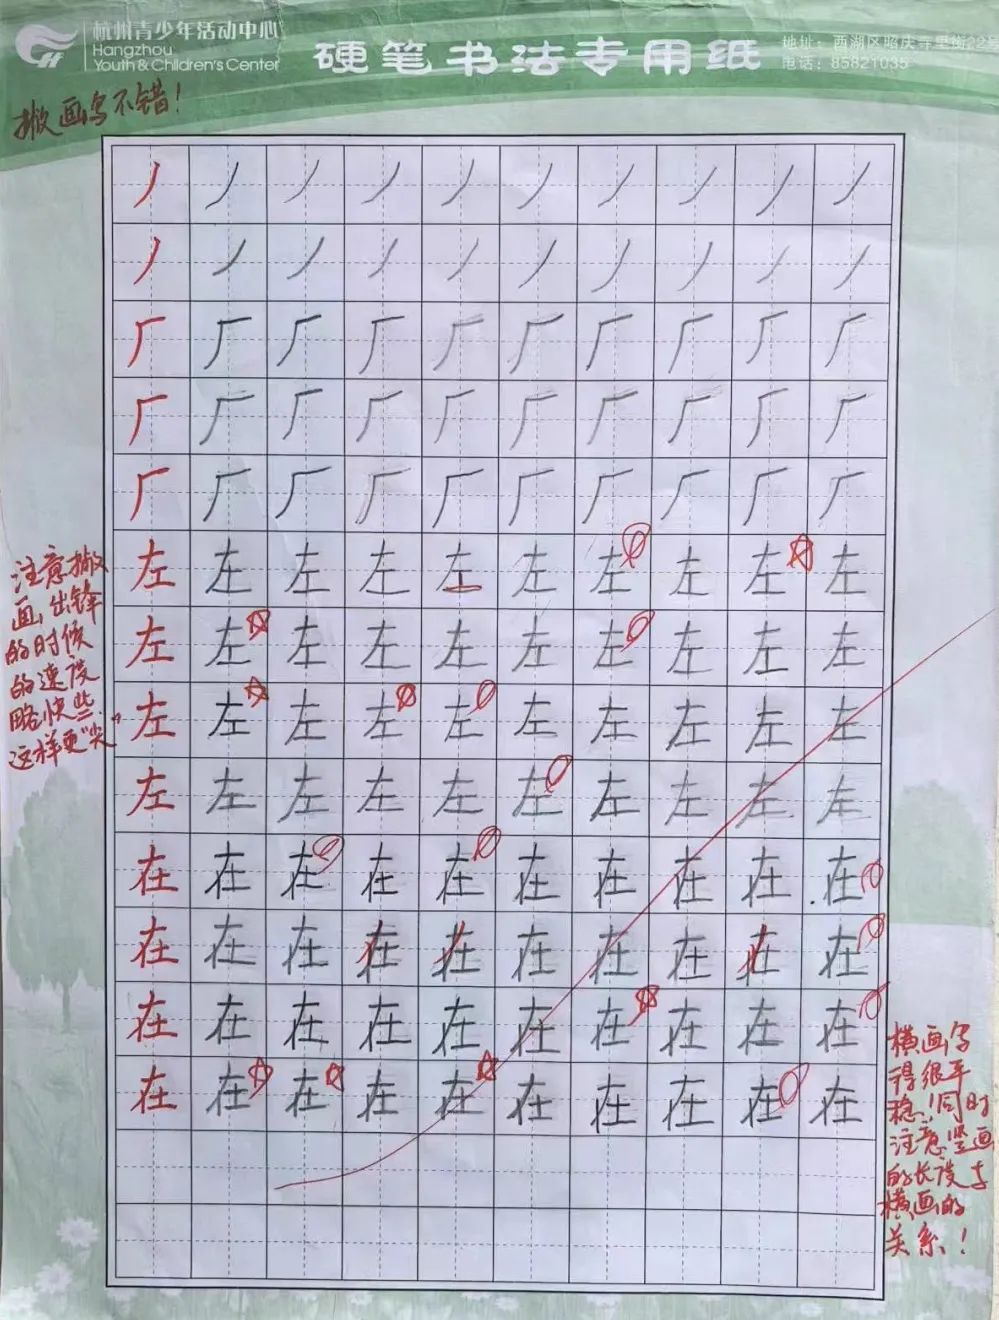 杭州青少年活动中心
Hangzhou
Youth & Children's Center
硬笔书法专用纸
地址：西湖区昭庆寺里街22号
电话：85821035
撇画写不错！
丿 丿 丿 丿 丿 丿 丿 丿 丿 丿
丿 丿 丿 丿 丿 丿 丿 丿 丿 丿
厂 厂 厂 厂 厂 厂 厂 厂 厂 厂
厂 厂 厂 厂 厂 厂 厂 厂 厂 厂
厂 厂 厂 厂 厂 厂 厂 厂 厂 厂
左 左 左 左 左 左 左 左 左 左
左 左 左 左 左 左 左 左 左 左
左 左 左 左 左 左 左 左 左 左
左 左 左 左 左 左 左 左 左 左
在 在 在 在 在 在 在 在 在 在
在 在 在 在 在 在 在 在 在 在
在 在 在 在 在 在 在 在 在 在
在 在 在 在 在 在 在 在 在 在
注意撇
画出锋
的时候
的速度
略快些
这样更"尖"
横画写
得很平
稳！同时
注意竖画
的长度与
横画的
关系！